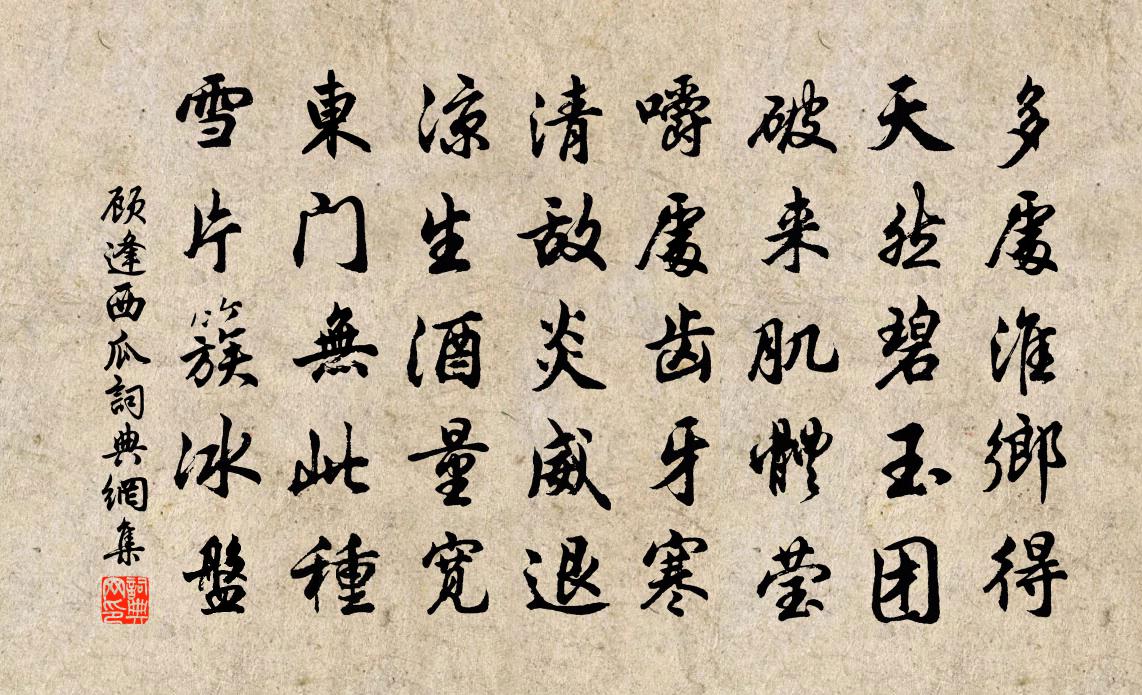 多處淮鄉得
天然碧玉团
破来肌體莹
嚼處齿牙寒
清敌炎威退
凉生酒量宽
東门無此種
雪片簇冰盤
顾逢西瓜詞典網集
詞典網印